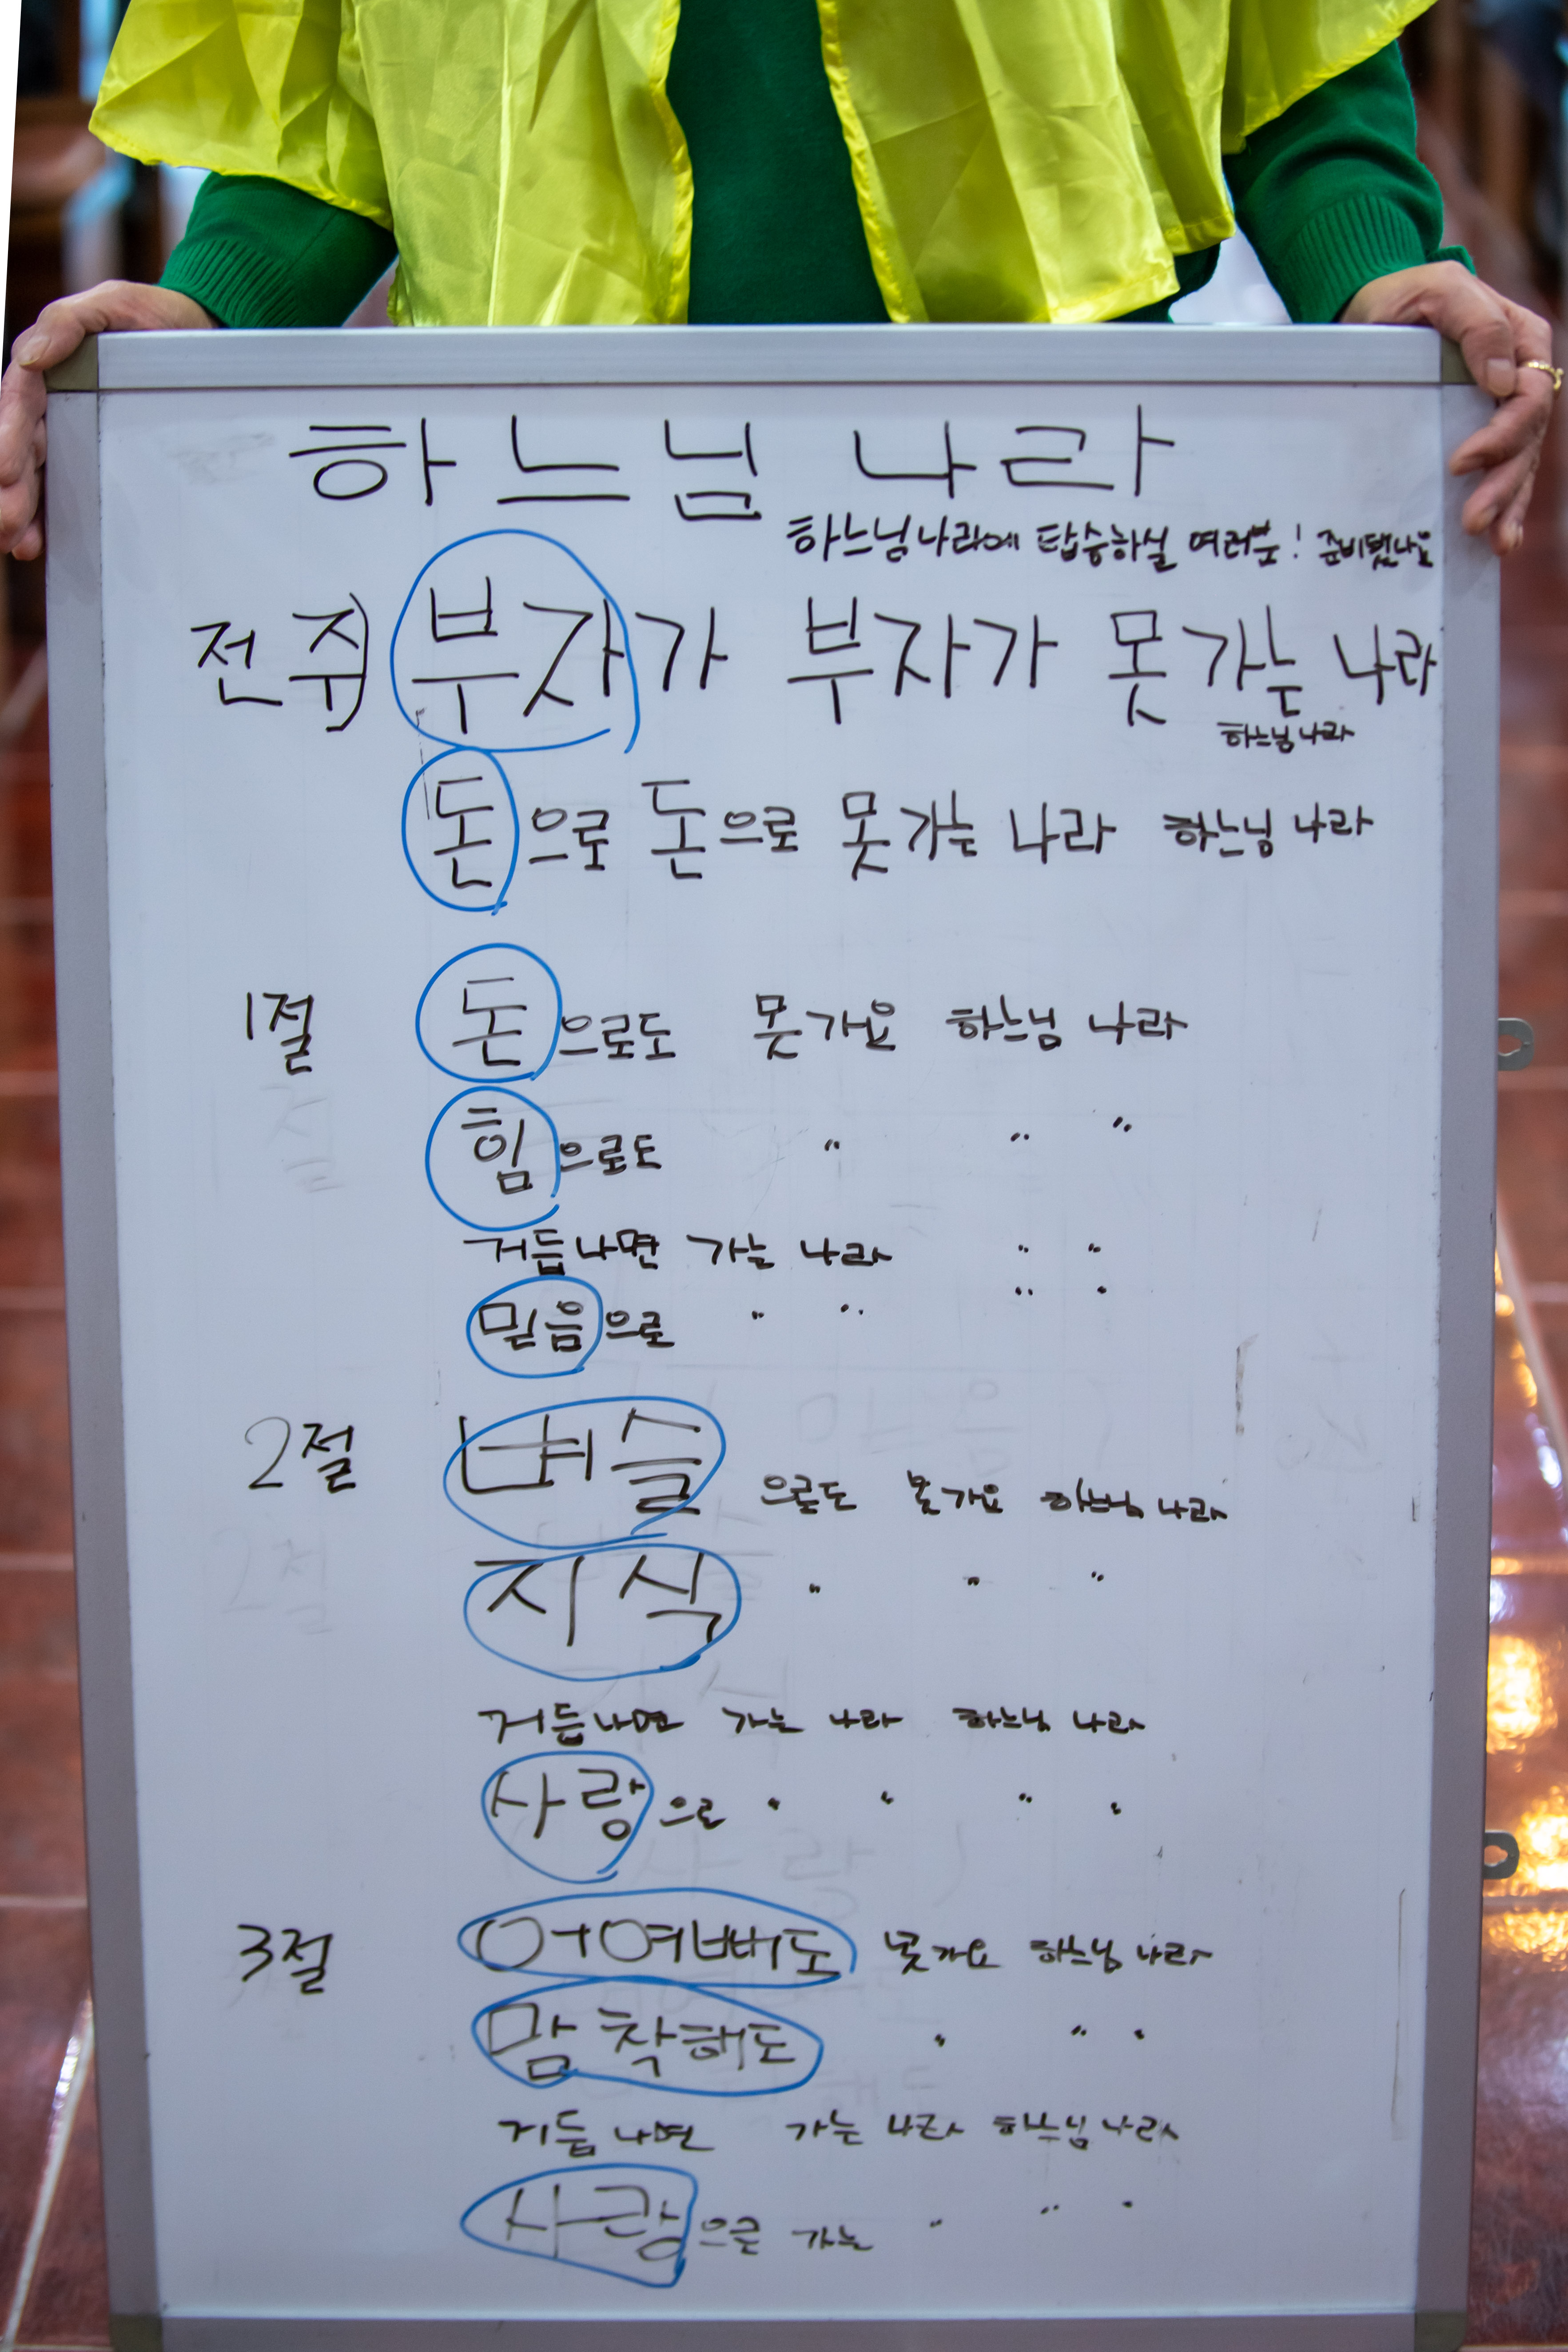 하느님 나라
하느님나라에 탑승하실 여러분! 준비됐나요
전주) 부자가 부자가 못가는 나라
하느님 나라
돈으로 돈으로 못가는 나라 하느님 나라
1절 돈으로도 못가요 하느님 나라
힘으로도 〃 〃 〃
거듭나면 가는 나라 〃 〃
믿음으로 〃 〃 〃 〃
2절 벼슬으로도 못가요 하느님 나라
지식 〃 〃 〃
거듭나면 가는 나라 하느님 나라
사랑으로 〃 〃 〃 〃
3절 어여뻐도 못가요 하느님 나라
맘 착해도 〃 〃 〃
거듭 나면 가는 나라 하느님 나라
사랑으로 가는 〃 〃 〃